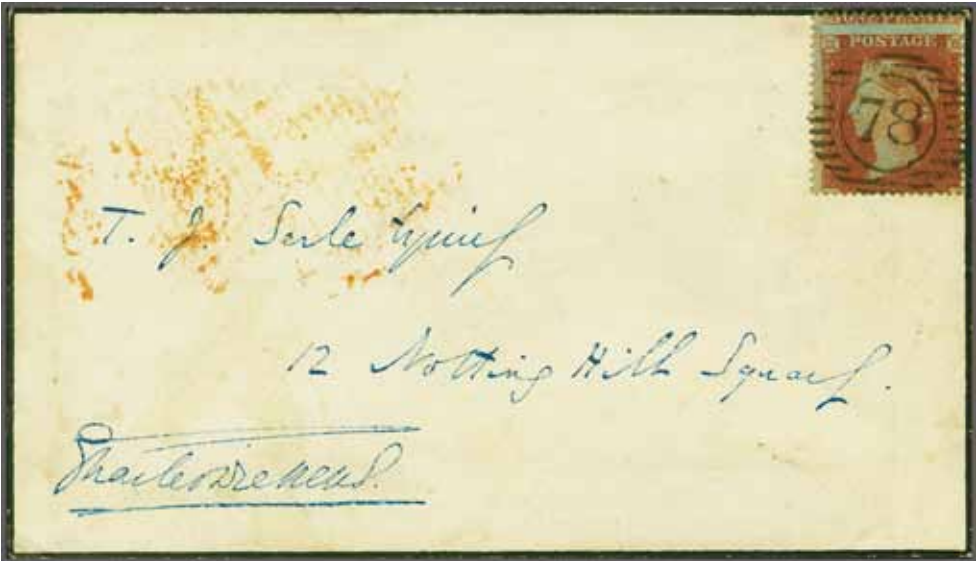 POSTAGE
78
T. J. Serle Esquire
12 Notting Hill Square.
Charles Dickens.